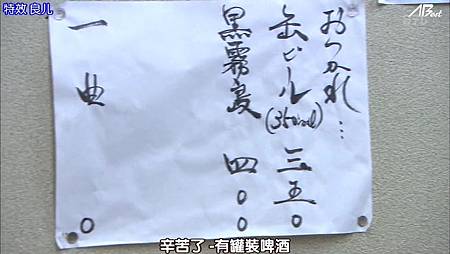 特效 良儿
ABest
おつかれ…
缶ビール(350ml) 三五〇
黒霧島 四〇〇
一曲 〇
辛苦了 -有罐裝啤酒